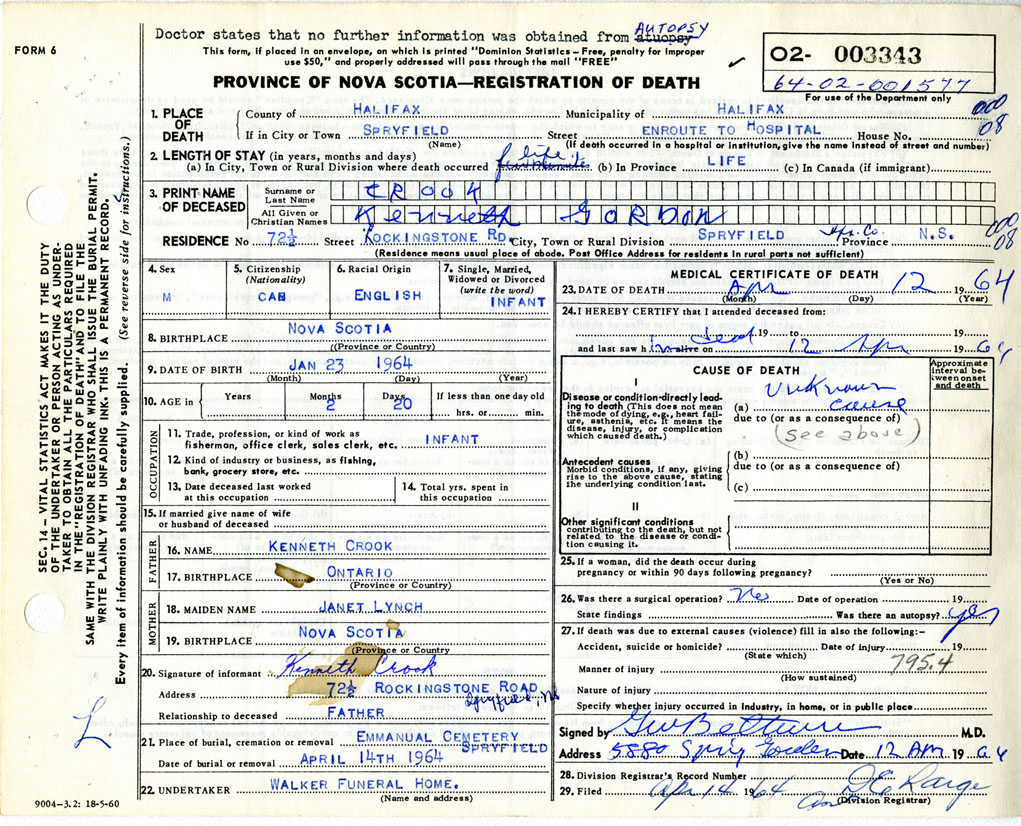 FORM 6
Doctor states that no further information was obtained from AUTOPSY atuopsy
This form, if placed in an envelope, on which is printed "Dominion Statistics – Free, penalty for improper
use $50," and properly addressed will pass through the mail "FREE"
PROVINCE OF NOVA SCOTIA—REGISTRATION OF DEATH
02- 003343
64-02-001577
For use of the Department only
000
08
1. PLACE OF DEATH
County of HALIFAX Municipality of HALIFAX
If in City or Town SPRYFIELD Street ENROUTE TO HOSPITAL House No.
(Name) (If death occurred in a hospital or institution, give the name instead of street and number)
2. LENGTH OF STAY (in years, months and days)
(a) In City, Town or Rural Division where death occurred life (b) In Province LIFE (c) In Canada (if immigrant)
3. PRINT NAME OF DECEASED
Surname or Last Name CROOK
All Given or Christian Names Kenneth GORDON
000
08
RESIDENCE No 72½ Street ROCKINGSTONE RD. City, Town or Rural Division SPRYFIELD Hfx. Co. Province N.S.
(Residence means usual place of abode. Post Office Address for residents in rural parts not sufficient)
4. Sex M
5. Citizenship (Nationality) CAN
6. Racial Origin ENGLISH
7. Single, Married, Widowed or Divorced (write the word) INFANT
8. BIRTHPLACE NOVA SCOTIA
((Province or Country)
9. DATE OF BIRTH JAN 23 1964
(Month) (Day) (Year)
10. AGE in Years Months 2 Days 20 If less than one day old hrs. or min.
OCCUPATION
11. Trade, profession, or kind of work as fisherman, office clerk, sales clerk, etc. INFANT
12. Kind of industry or business, as fishing, bank, grocery store, etc.
13. Date deceased last worked at this occupation
14. Total yrs. spent in this occupation
15. If married give name of wife or husband of deceased
FATHER
16. NAME KENNETH CROOK
17. BIRTHPLACE ONTARIO
(Province or Country)
MOTHER
18. MAIDEN NAME JANET LYNCH
19. BIRTHPLACE NOVA SCOTIA
(Province or Country)
20. Signature of informant Kenneth Crook
Address 72½ ROCKINGSTONE ROAD
Spryfield, NS
Relationship to deceased FATHER
21. Place of burial, cremation or removal EMMANUAL CEMETERY SPRYFIELD
Date of burial or removal APRIL 14TH 1964
22. UNDERTAKER WALKER FUNERAL HOME.
(Name and address)
MEDICAL CERTIFICATE OF DEATH
23. DATE OF DEATH Apr 12 1964
(Month) (Day) (Year)
24. I HEREBY CERTIFY that I attended deceased from:
dead 19 to
and last saw him alive on 12 Apr 1964
CAUSE OF DEATH
Approximate interval between onset and death
I
Disease or condition directly leading to death (This does not mean the mode of dying, e.g., heart failure, asthenia, etc. It means the disease, injury, or complication which caused death.)
(a) Unknown cause
due to (or as a consequence of)
(see above)
Antecedent causes
Morbid conditions, if any, giving rise to the above cause, stating the underlying condition last.
(b)
due to (or as a consequence of)
(c)
II
Other significant conditions
contributing to the death, but not related to the disease or condition causing it.
25. If a woman, did the death occur during pregnancy or within 90 days following pregnancy?
(Yes or No)
26. Was there a surgical operation? No Date of operation 19
State findings Was there an autopsy? yes
27. If death was due to external causes (violence) fill in also the following:–
Accident, suicide or homicide? Date of injury 19
(State which)
795.4
Manner of injury
(How sustained)
Nature of injury
Specify whether injury occurred in industry, in home, or in public place
Signed by M.D.
Address 5880 Spring Garden Date 12 Apr 1964
28. Division Registrar's Record Number
29. Filed Apr 14 1964
(Division Registrar)
SEC. 14 – VITAL STATISTICS ACT MAKES IT THE DUTY
OF THE UNDERTAKER OR PERSON ACTING AS UNDER-
TAKER TO OBTAIN ALL THE PARTICULARS REQUIRED
IN THE "REGISTRATION OF DEATH" AND TO FILE THE
SAME WITH THE DIVISION REGISTRAR WHO SHALL ISSUE THE BURIAL PERMIT.
WRITE PLAINLY WITH UNFADING INK. THIS IS A PERMANENT RECORD.
Every item of information should be carefully supplied. (See reverse side for instructions.)
L
9004–3.2: 18-5-60